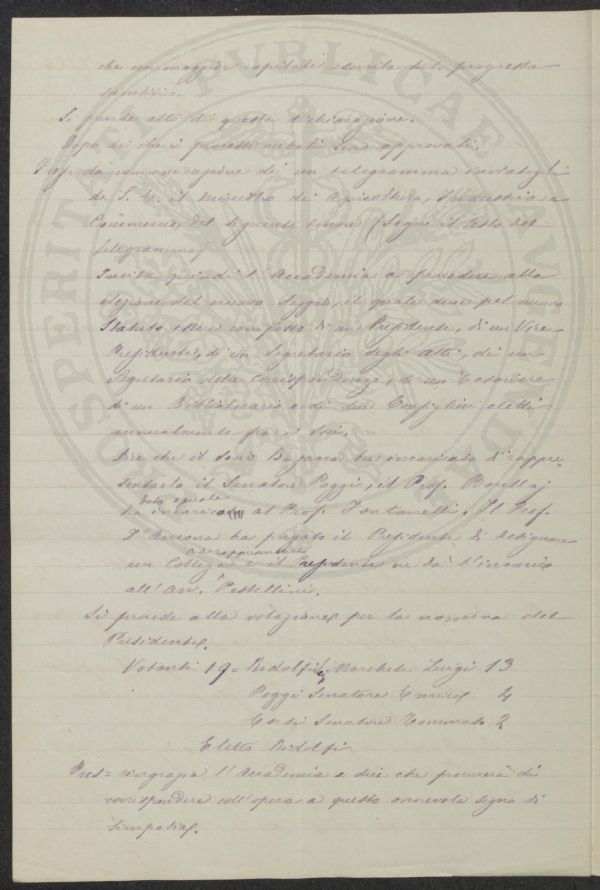 che un maggior capitale
scientifico.
Si prende atto di questa dichiarazione.
Dopo di che i processi verbali sono approvati.
Pres. da comunicazione di un telegramma inviatogli
da S. E. il Ministro di Agricoltura, Industria e
Commercio, del seguente tenore (Segue il testo del
telegramma)
Invita quindi l'Accademia a procedere alla
elezione del nuovo Seggio, il quale deve pel nuovo
Statuto essere composto di un Presidente, di un Vice-
Presidente, di un Segretario degli Atti, di un
Segretario delle Corrispondenze, di un Tesoriere,
di un Bibliotecario e di due Consiglieri eletti
annualmente fra i Soci.
Dice che il Socio ha incaricato di rappre-
sentarlo il Senatore Poggi, il Prof.
dato eguale
ha incarico al Prof. Fontanelli. Il Prof.
D'Ancona ha pregato il Presidente di designare
a rappresentarlo
un Collega e il Presidente ne dà l'incarico
all'Avv. Pestellini.
Si procede alla votazione per la nomina del
Presidente.
Votanti 19 = Ridolfi Marchese Luigi 13
Poggi Senatore Enrico 4
Corsi Senatore Tommaso 2
Eletto Ridolfi
Pres = ringrazia l'Accademia e dice che procurerà di
corrispondere coll'opera a questo onorevole segno di
simpatia.
PROSPERITATI PUBLICAE AUGENDAE